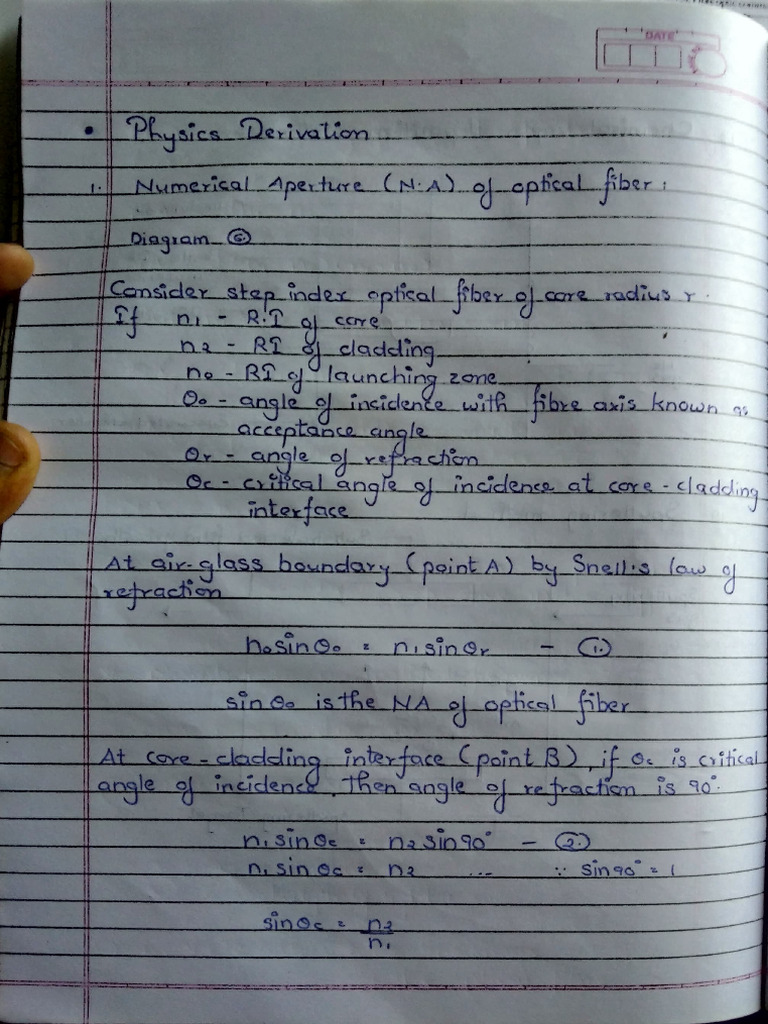 DATE
• Physics Derivation
1. Numerical Aperture (N.A) of optical fiber:
Diagram ⑥
Consider step index optical fiber of core radius r.
If n₁ - R.I of core
n₂ - RI of cladding
n₀ - RI of launching zone
θ₀ - angle of incidence with fibre axis known as
acceptance angle
θr - angle of refraction
θc - critical angle of incidence at core-cladding
interface
At air-glass boundary (point A) by Snell's law of
refraction
n₀sinθ₀ = n₁sinθr - ①
sinθ₀ is the NA of optical fiber
At core-cladding interface (point B), if θc is critical
angle of incidence, then angle of refraction is 90°.
n₁sinθc = n₂sin90° - ②
n₁sinθc = n₂ ... ∵ sin90° = 1
sinθc = n₂
n₁